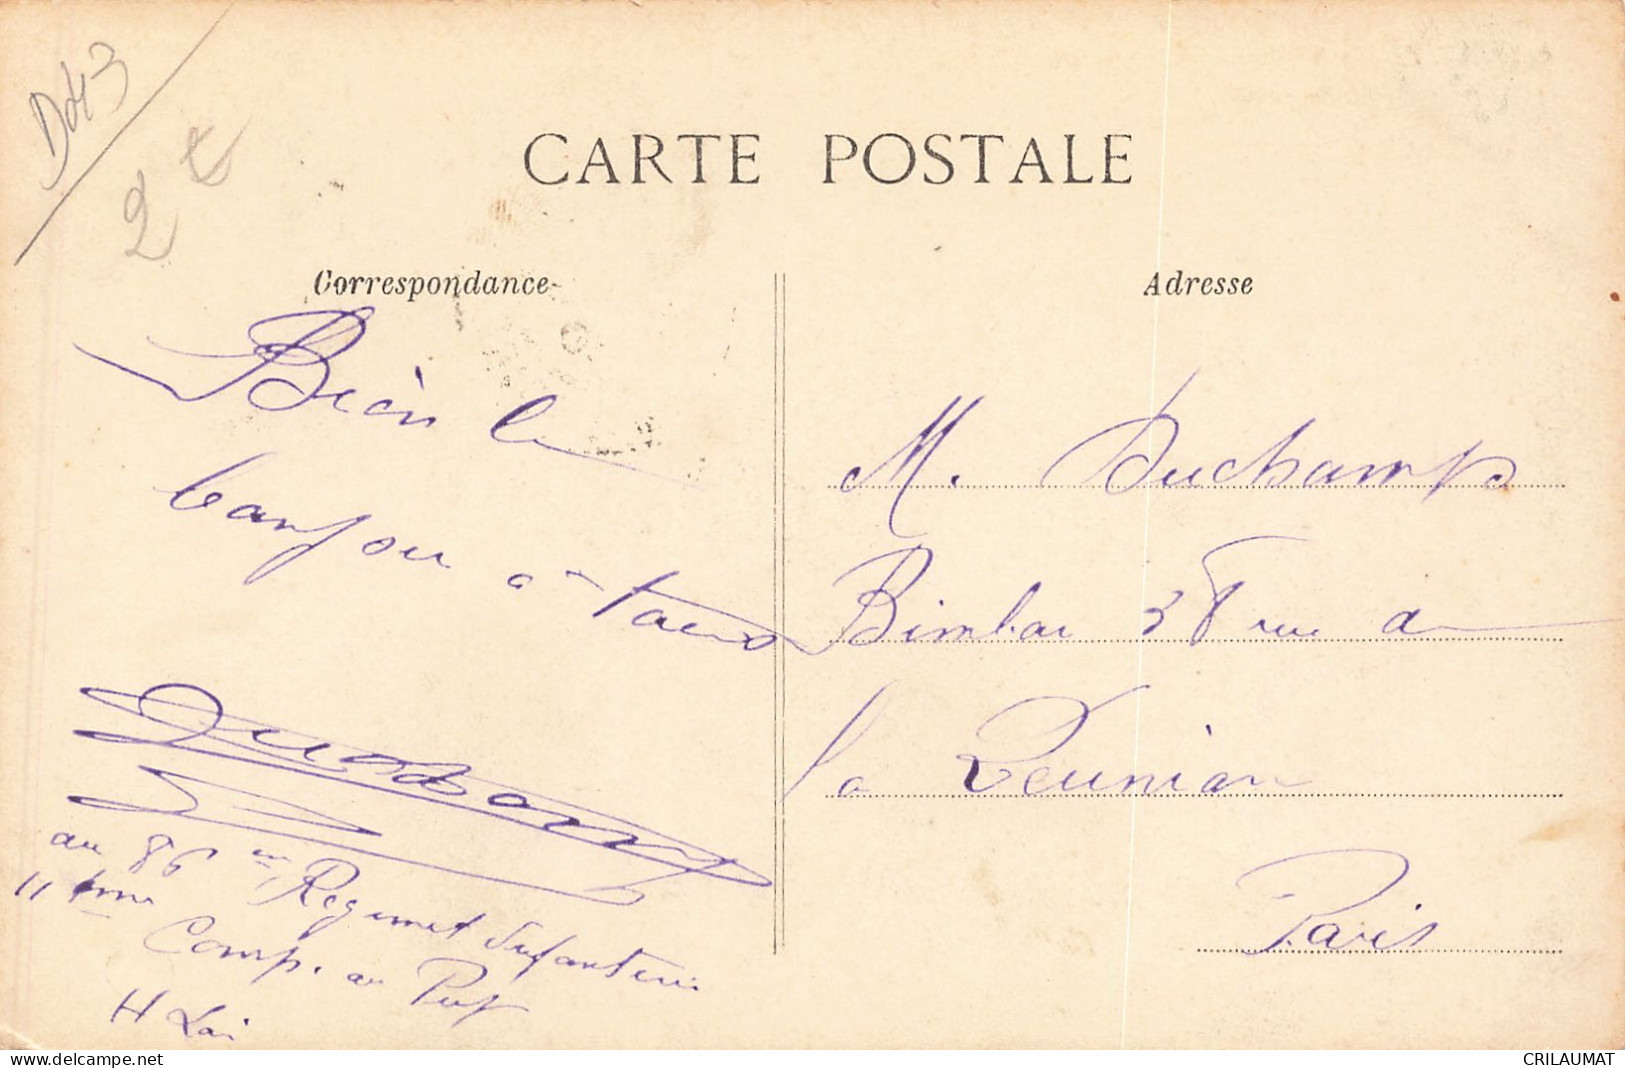 D43
2 €
CARTE POSTALE
Correspondance
Adresse
Bien le
bonjour à tous
au 86 me Regiment Infanterie
11 eme Comp. au Puy
H Loi
M. Duchamps
Bimbar 38 rue de
la Reunion
Paris
delcampe.net
CRILAUMAT